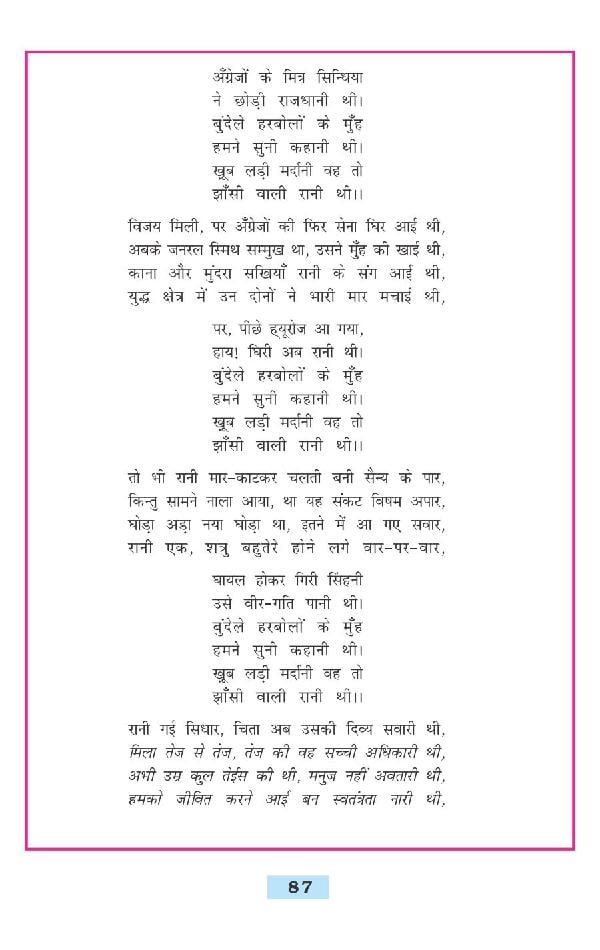 अँग्रेजों के मित्र सिन्धिया
ने छोड़ी राजधानी थी।
बुंदेले हरबोलों के मुँह
हमने सुनी कहानी थी।
खूब लड़ी मर्दानी वह तो
झाँसी वाली रानी थी।।
विजय मिली, पर अँग्रेजों की फिर सेना घिर आई थी,
अबके जनरल स्मिथ सम्मुख था, उसने मुँह की खाई थी,
काना और मुंदरा सखियाँ रानी के संग आई थी,
युद्ध क्षेत्र में उन दोनों ने भारी मार मचाई थी,
पर, पीछे ह्यूरोज आ गया,
हाय! घिरी अब रानी थी।
बुंदेले हरबोलों के मुँह
हमने सुनी कहानी थी।
खूब लड़ी मर्दानी वह तो
झाँसी वाली रानी थी।।
तो भी रानी मार-काटकर चलती बनी सैन्य के पार,
किन्तु सामने नाला आया, था यह संकट विषम अपार,
घोड़ा अड़ा नया घोड़ा था, इतने में आ गए सवार,
रानी एक, शत्रु बहुतेरे होने लगे वार-पर-वार,
घायल होकर गिरी सिंहनी
उसे वीर-गति पानी थी।
बुंदेले हरबोलों के मुँह
हमने सुनी कहानी थी।
खूब लड़ी मर्दानी वह तो
झाँसी वाली रानी थी।।
रानी गई सिधार, चिता अब उसकी दिव्य सवारी थी,
मिला तेज से तेज, तेज की वह सच्ची अधिकारी थी,
अभी उम्र कुल तेईस की थी, मनुज नहीं अवतारी थी,
हमको जीवित करने आई बन स्वतंत्रता नारी थी,
87